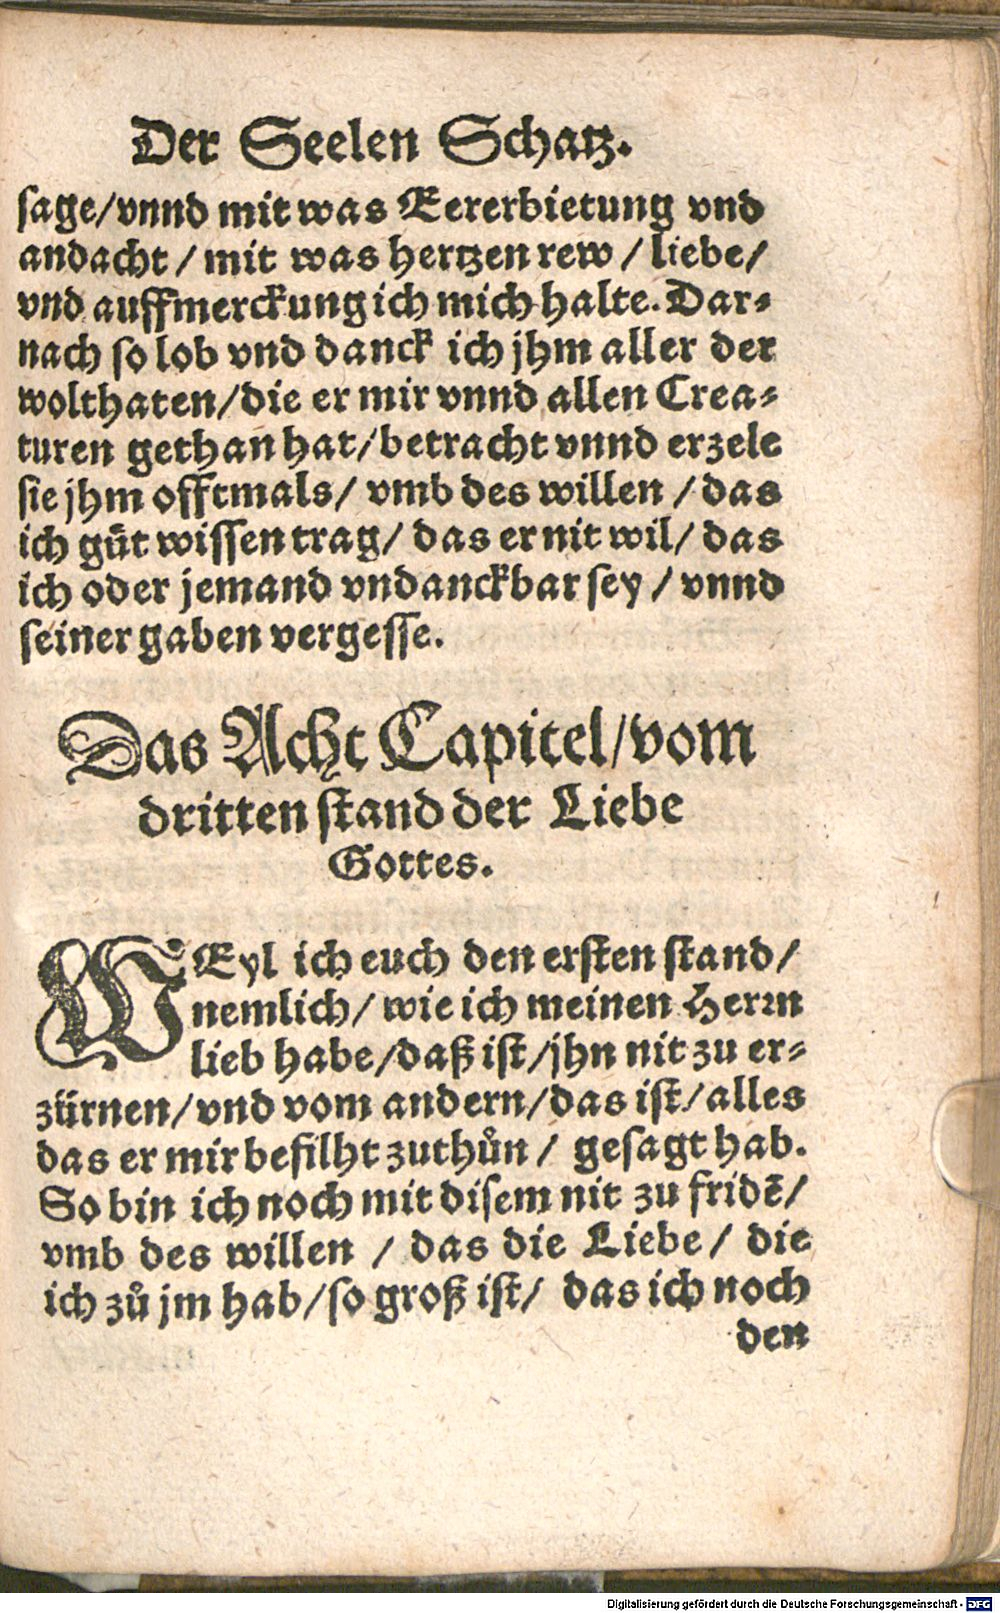 Der Seelen Schatz.
sage/vnnd mit was Eererbietung vnd
andacht / mit was hertzen rew / liebe/
vnd auffmerckung ich mich halte. Dar-
nach so lob vnd danck ich jhm aller der
wolthaten/die er mir vnnd allen Crea-
turen gethan hat/betracht vnnd erzele
sie jhm offtmals/ vmb des willen / das
ich gůt wissen trag/ das er nit wil/ das
ich oder jemand vndanckbar sey / vnnd
seiner gaben vergesse.
Das Acht Capitel/vom
dritten stand der Liebe
Gottes.
WEyl ich euch den ersten stand/
nemlich/ wie ich meinen Herrn
lieb habe/daß ist/jhn nit zu er-
zürnen/vnd vom andern/das ist/alles
das er mir befilht zuthůn / gesagt hab.
So bin ich noch mit disem nit zu fridẽ/
vmb des willen / das die Liebe/ die
ich zů jm hab/so groß ist/ das ich noch
den
Digitalisierung gefördert durch die Deutsche Forschungsgemeinschaft - DFG